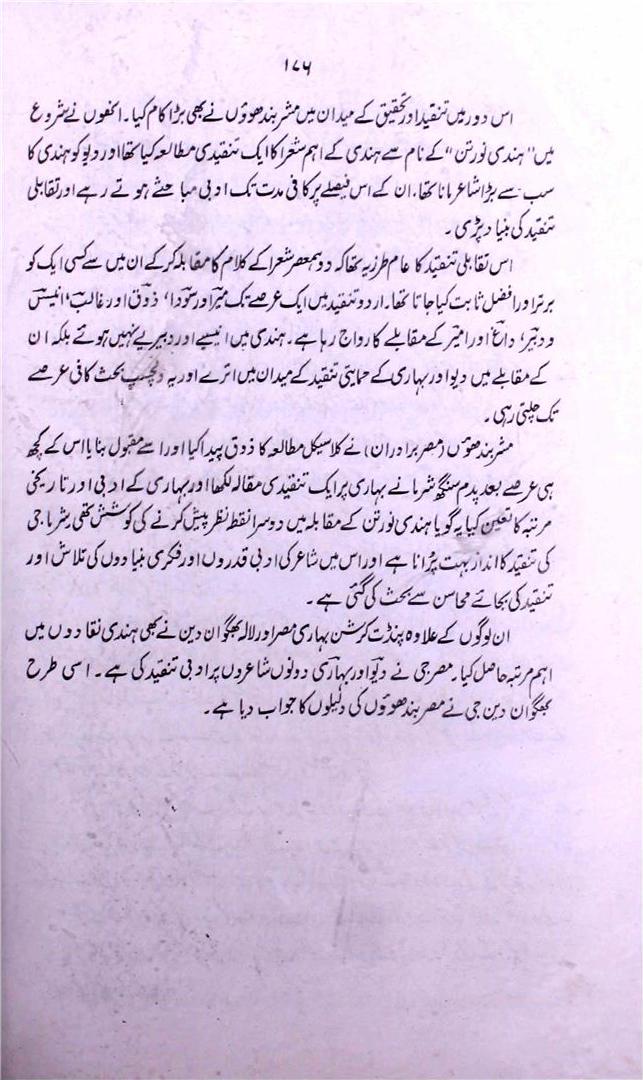 ۱۷۶
اس دور میں تنقید اور تحقیق کے میدان میں مشر بندھوؤں نے بھی بڑا کام کیا۔ انھوں نے شروع
میں "ہندی نورتن" کے نام سے ہندی کے اہم شعرا کا ایک تنقیدی مطالعہ کیا تھا اور دیو کو ہندی کا
سب سے بڑا شاعر مانا تھا۔ ان کے اس فیصلے پر کافی مدت تک ادبی مباحثے ہوتے رہے اور تقابلی
تنقید کی بنیاد پڑی۔
اس تقابلی تنقید کا عام طرز یہ تھا کہ دو ہمعصر شعرا کے کلام کا مقابلہ کر کے ان میں سے کسی ایک کو
برتر اور افضل ثابت کیا جاتا تھا۔ اردو تنقید میں ایک عرصے تک میر اور سودا، ذوق اور غالب، انیس
و دبیر، داغ اور امیر کے مقابلے کا رواج رہا ہے۔ ہندی میں انیسے اور دبیریے نہیں ہوئے بلکہ ان
کے مقابلے میں دیو اور بہاری کے حمایتی تنقید کے میدان میں اترے اور یہ دلچسپ بحث کافی عرصے
تک چلتی رہی۔
مشر بندھوؤں (مصر برادران) نے کلاسیکل مطالعہ کا ذوق پیدا کیا اور اسے مقبول بنایا اس کے کچھ
ہی عرصے بعد پدم سنگھ شرما نے بہاری پر ایک تنقیدی مقالہ لکھا اور بہاری کے ادبی اور تاریخی
مرتبہ کا تعین کیا یہ گویا ہندی نورتن کے مقابلہ میں دوسرا نقطۂ نظر پیش کرنے کی کوشش تھی۔ شرما جی
کی تنقید کا انداز بہت پرانا ہے اور اس میں شاعر کی ادبی قدروں اور فکری بنیادوں کی تلاش اور
تنقید کی بجائے محاسن سے بحث کی گئی ہے۔
ان لوگوں کے علاوہ پنڈت کرشن بہاری مصر اور لالہ بھگوان دین نے بھی ہندی نقادوں میں
اہم مرتبہ حاصل کیا۔ مصر جی نے دیو اور بہاری دونوں شاعروں پر ادبی تنقید کی ہے۔ اسی طرح
بھگوان دین جی نے مصر بندھوؤں کی دلیلوں کا جواب دیا ہے۔